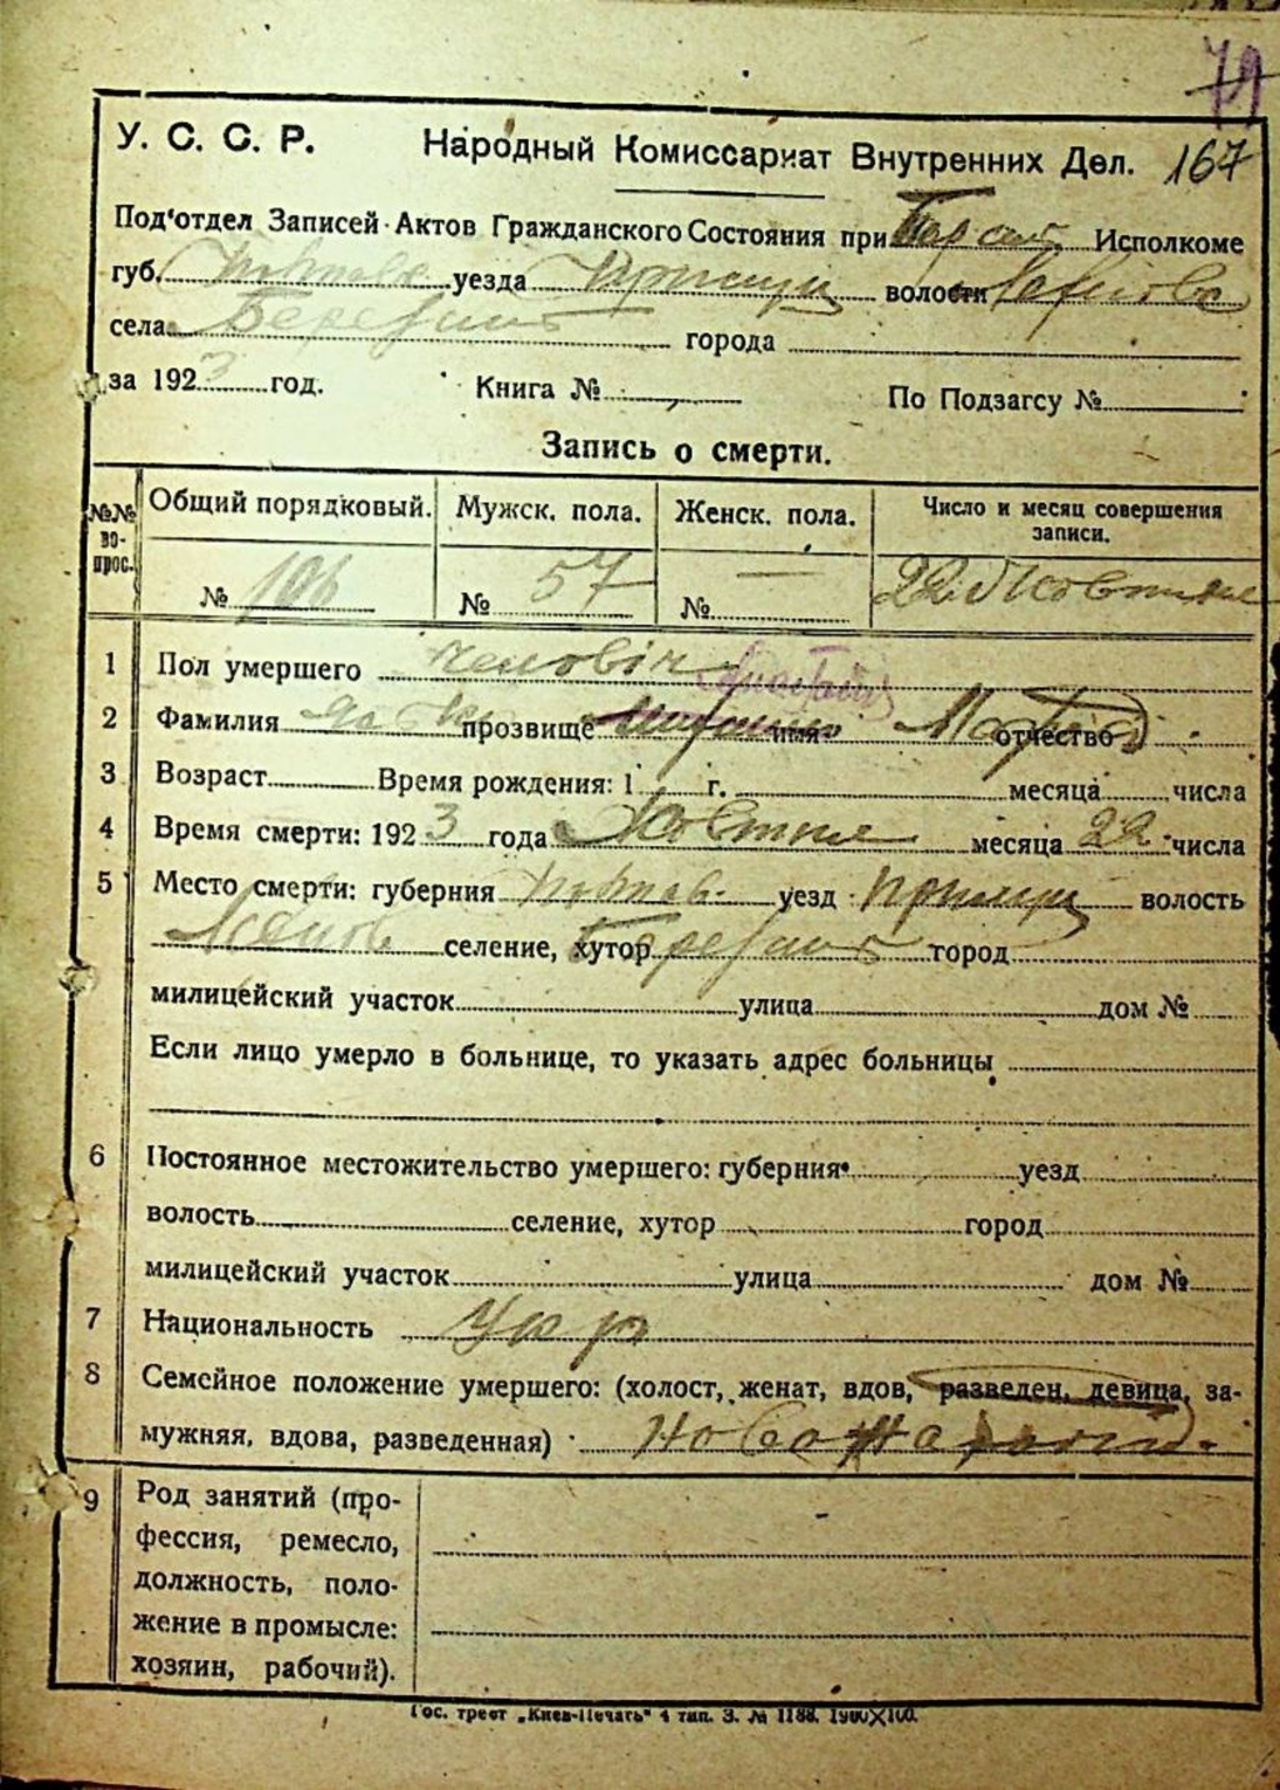 79
У. С. С. Р. Народный Комиссариат Внутренних Дел. 167
Под'отдел Записей Актов Гражданского Состояния при Исполкоме
губ. Полтавс уезда Прилуц волости
села города
за 1923 год. Книга № По Подзагсу №
Запись о смерти.
№№ во-прос. Общий порядковый. Мужск. пола. Женск. пола. Число и месяц совершения записи.
№ 106 № 57 № — 22 Жовтня
1 Пол умершего чоловіч
2 Фамилия прозвище имя отчество
3 Возраст Время рождения: 1 г. месяца числа
4 Время смерти: 1923 года Жовтня месяца 22 числа
5 Место смерти: губерния Полтав. уезд Прилуц волость
селение, хутор город
милицейский участок улица дом №
Если лицо умерло в больнице, то указать адрес больницы
6 Постоянное местожительство умершего: губерния уезд
волость селение, хутор город
милицейский участок улица дом №
7 Национальность Укр
8 Семейное положение умершего: (холост, женат, вдов, разведен, девица, за-
мужняя, вдова, разведенная)
9 Род занятий (про-
фессия, ремесло,
должность, поло-
жение в промысле:
хозяин, рабочий).
Гос. трест „Киев-Печать" 4 тип. З. № 1188. 1900×100.